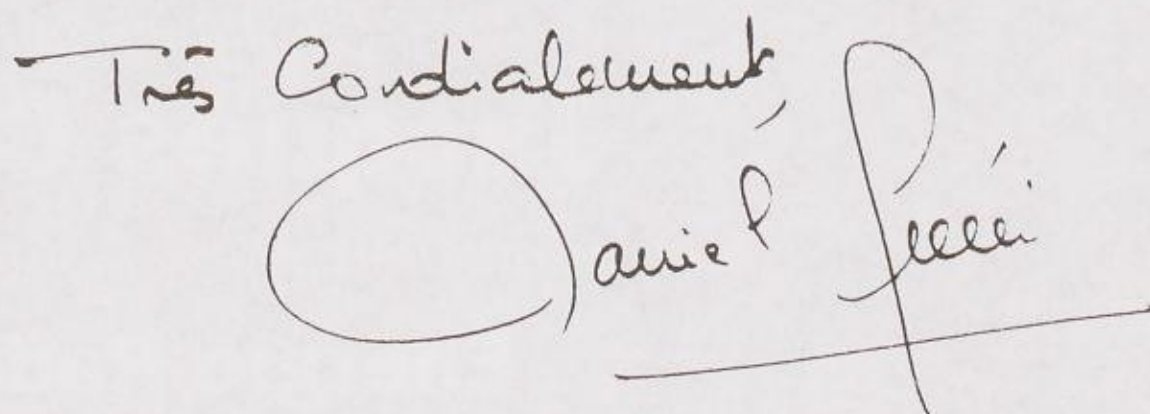 Très Cordialement,
Daniel